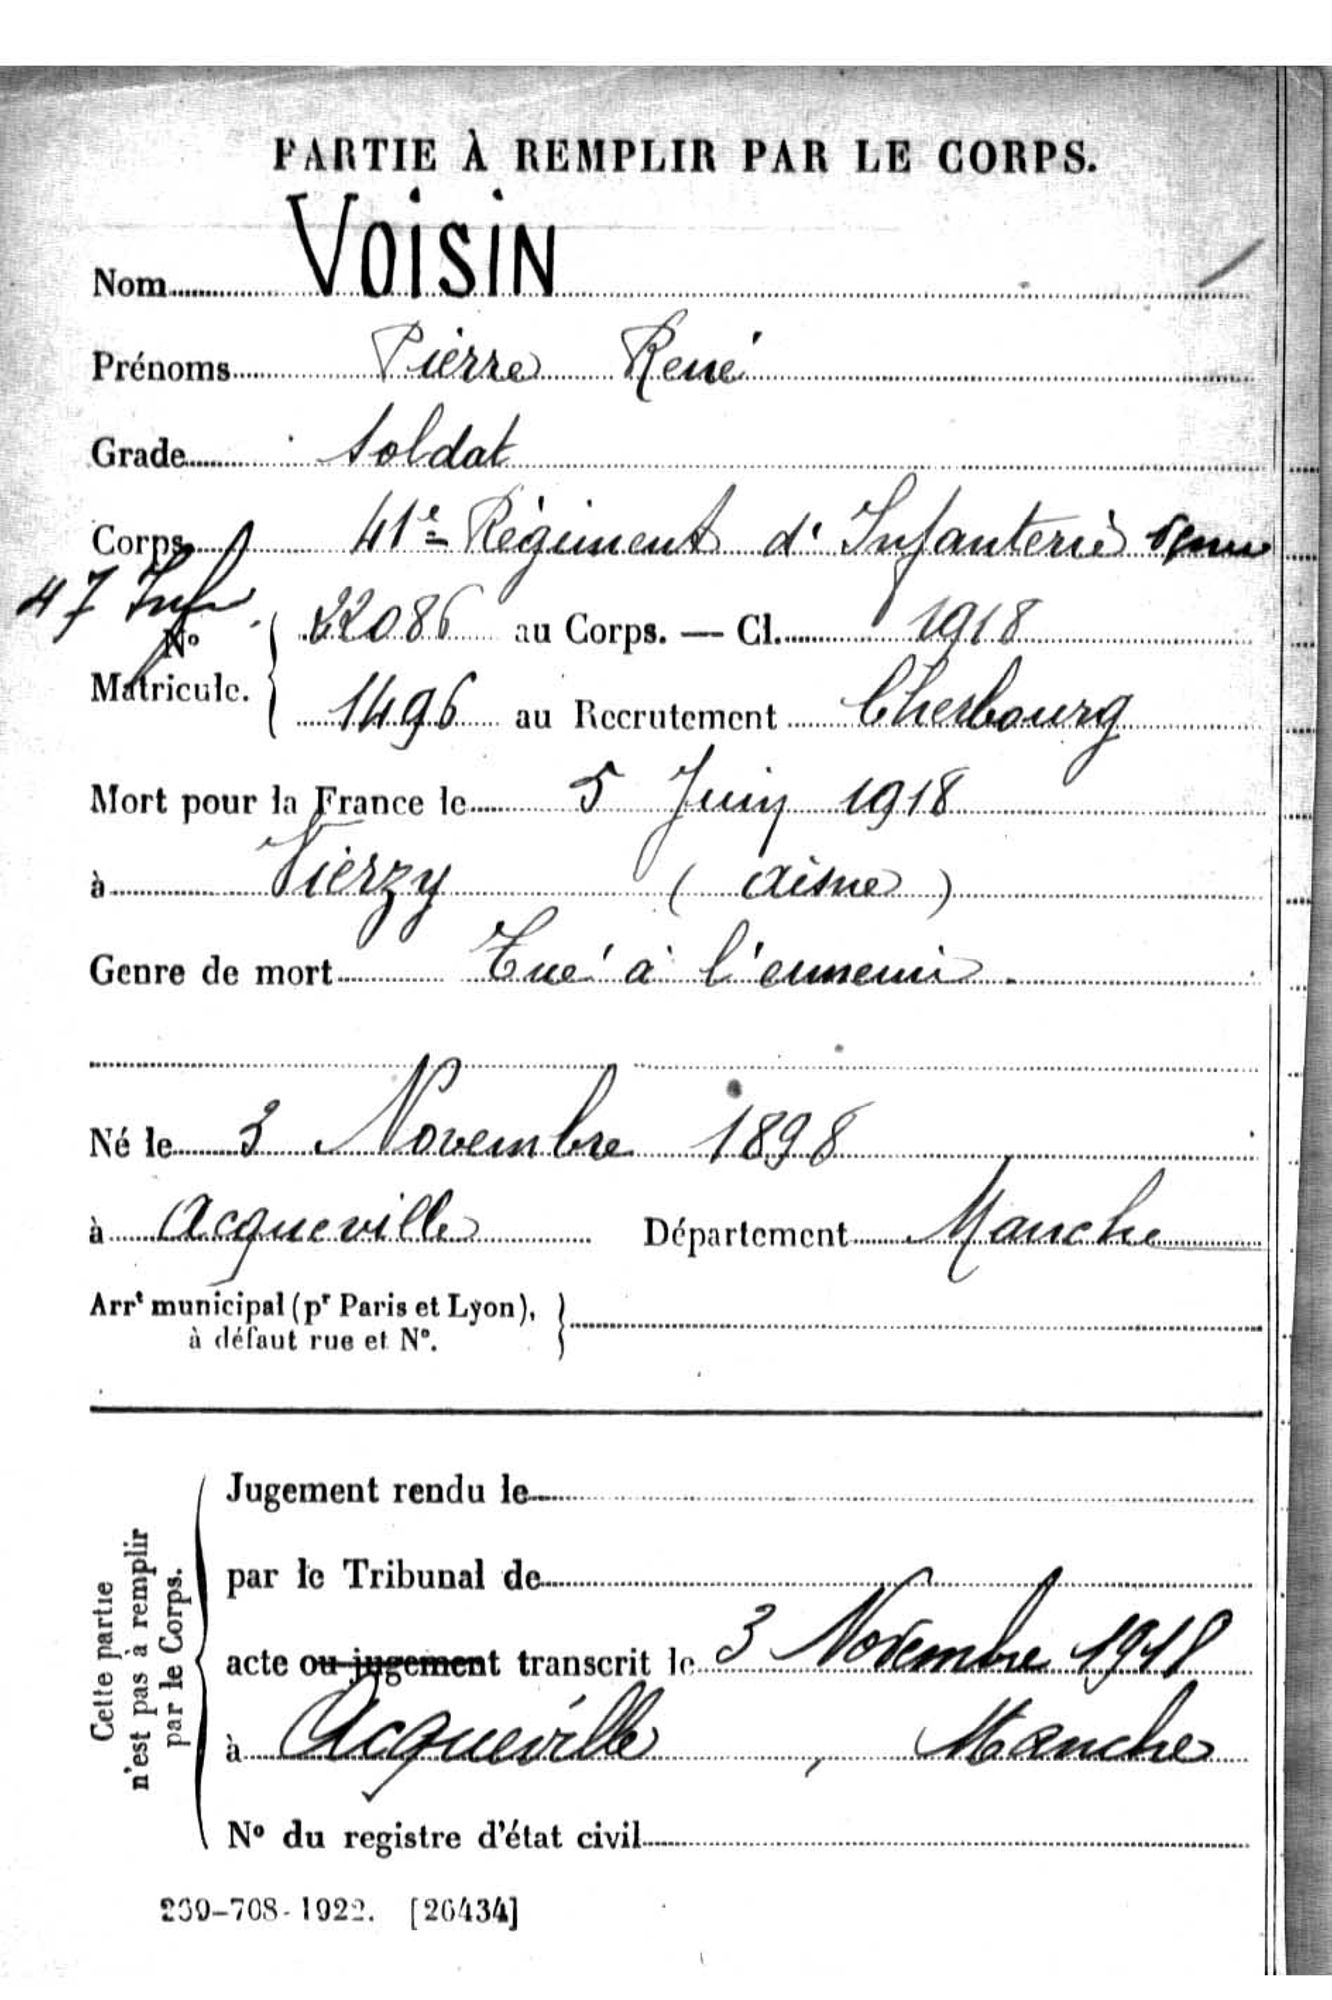 PARTIE À REMPLIR PAR LE CORPS.
Nom VOISIN
Prénoms Pierre René
Grade Soldat
Corps 41e Régiment d'Infanterie
47 Inf
No Matricule. 22086 au Corps. — Cl. 1918
1496 au Recrutement Cherbourg
Mort pour la France le 5 Juin 1918
à Vierzy (Aisne)
Genre de mort Tué à l'ennemi
Né le 3 Novembre 1898
à Acqueville Département Manche
Arrt municipal (pr Paris et Lyon),
à défaut rue et No.
Cette partie
n'est pas à remplir
par le Corps.
Jugement rendu le
par le Tribunal de
acte ou jugement transcrit le 3 Novembre 1918
à Acqueville, Manche
No du registre d'état civil
239-708-1922. [26434]